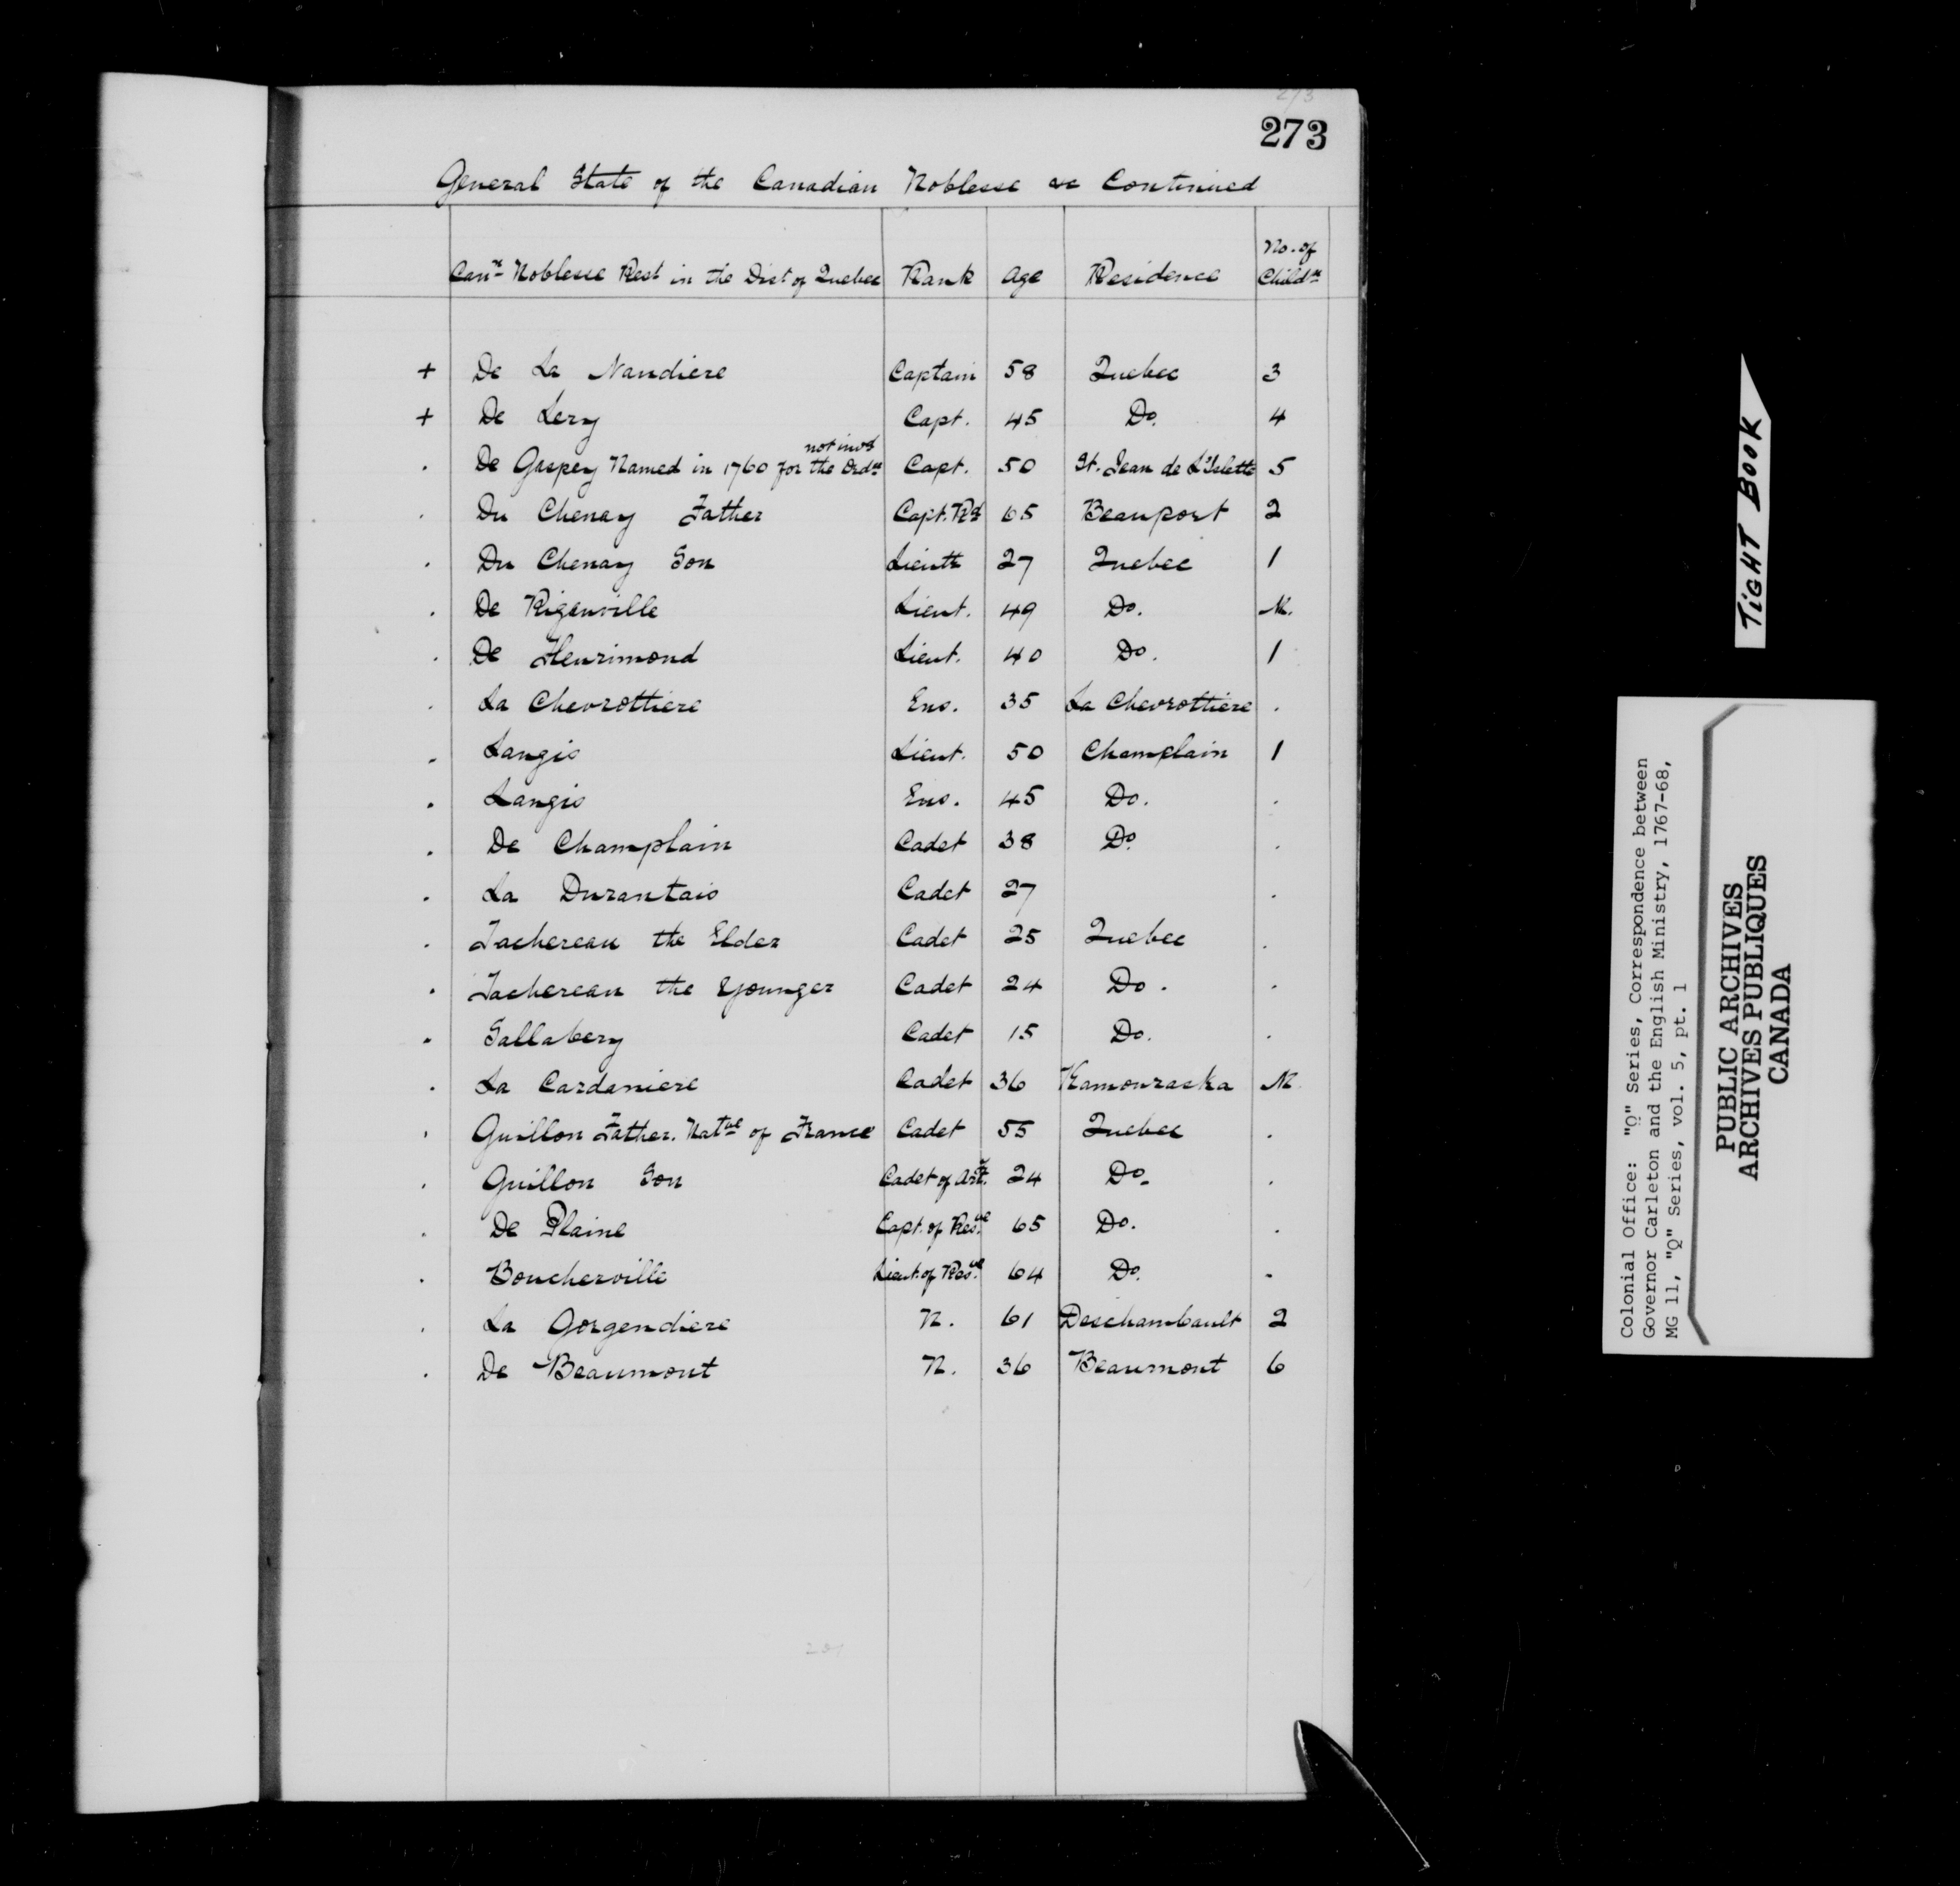 273
273
General State of the Canadian Noblesse &c Continued
Cann Noblesse Rest in the Dist of Quebec Rank Age Residence No. of Childn
+ De La Naudiere Captain 58 Quebec 3
+ De Lery Capt. 45 Do. 4
. De Gaspey Named in 1760 for not invd the Ordre Capt. 50 St. Jean de L'Islette 5
. Du Chenay Father Capt. Rd 65 Beauport 2
. Du Chenay Son Lieutt 27 Quebec 1
. De Rigenville Lieut. 49 Do. M.
. De Heurimond Lieut. 40 Do. 1
. La Chevrottiere Ens. 35 La Chevrottiere .
. Langis Lieut. 50 Champlain 1
. Langis Ens. 45 Do. .
. De Champlain Cadet 38 Do. .
. La Durantais Cadet 27 .
. Tachereau the Elder Cadet 25 Quebec .
. Tachereau the Younger Cadet 24 Do. .
. Sallabery Cadet 15 Do. .
. La Cardaniere Cadet 36 Kamouraska M.
. Guillon Father. Natve of France Cadet 55 Quebec .
. Guillon Son Cadet of Arty. 24 Do. .
. De Plaine Capt. of Resve. 65 Do. .
. Boucherville Lieut. of Resve. 64 Do. .
. La Gorgendiere N. 61 Deschambault 2
. De Beaumont N. 36 Beaumont 6
TIGHT BOOK
Colonial Office: "Q" Series, Correspondence between
Governor Carleton and the English Ministry, 1767-68,
MG 11, "Q" Series, vol. 5, pt. 1
PUBLIC ARCHIVES
ARCHIVES PUBLIQUES
CANADA